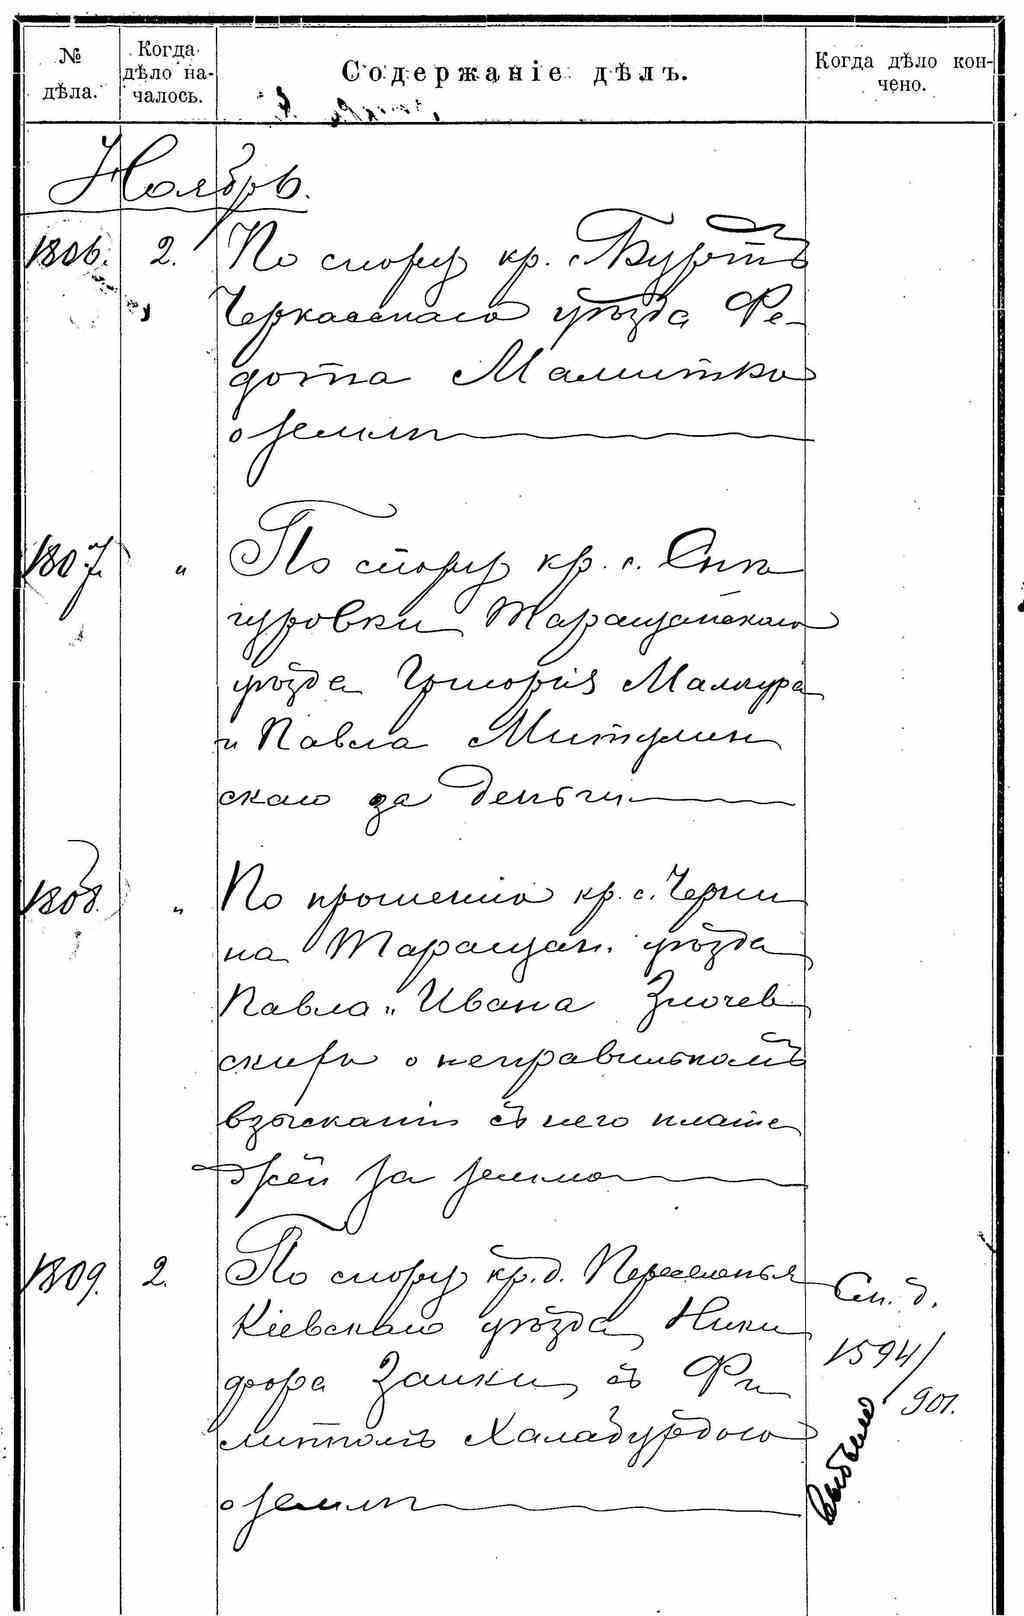 № дѣла.
Когда дѣло на-
чалось.
Содержаніе дѣлъ.
Когда дѣло кон-
чено.
Ноябрь.
1806. 2. По спору кр. с. Бурт
Черкасскаго уѣзда Фе-
дота Мамитко
о землѣ
1807. " По спору кр. с. Сни
гуровки Таращанскаго
уѣзда Григорія
и Павла Митулин
скаго за деньги
1808. " По прошенію кр. с. Черни
на Таращан. уѣзда
Павла и Ивана Злочев
скихъ о неправильномъ
взысканіи съ него плате
жей за землю
1809. 2. По спору кр. д. Переселенья
Кіевскаго уѣзда Ники
фора Заики съ Фи
липпомъ Халабурдою
о землѣ
См. д.
1594/
901.
выбыло